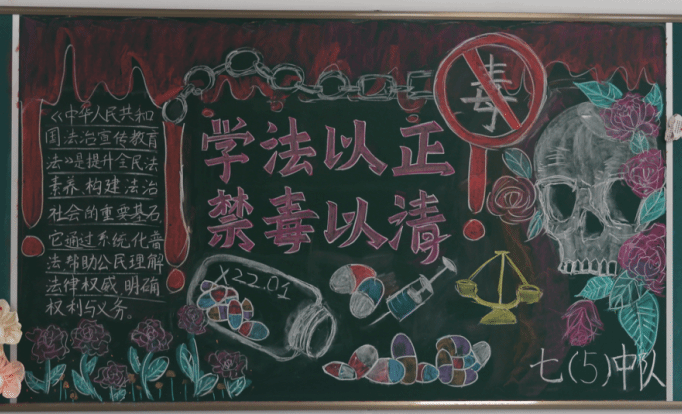 《中华人民共和
国法治宣传教育
法》是提升全民法
素养 构建法治
社会的重要基石
它通过系统化普
法帮助公民理解
法律权威 明确
权利与义务。
毒
学法以正
禁毒以清
X22.01
七(5)中队